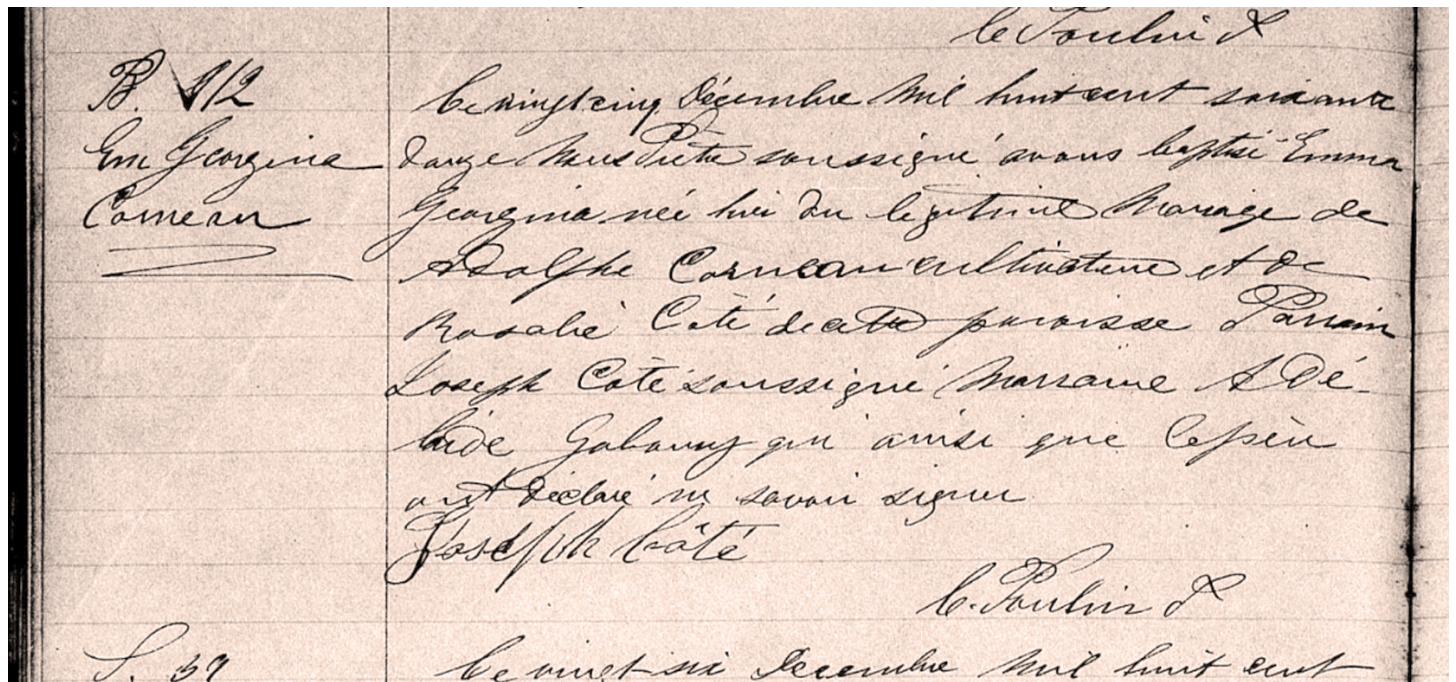 C. Poulin P
B. 112
Em Georgina
Comeau
Le vingt cinq Décembre Mil huit cent soixante
douze Nous Prêtre soussigné avons baptisé Emma
Georgina née hier du légitime Mariage de
Adolphe Comeau cultivateur et de
Rosalie Coté de cette paroisse Parrain
Joseph Coté soussigné Marraine Adé-
laide Gabaury qui ainsi que le père
ont déclaré ne savoir signer
Joseph Côté
C. Poulin P
S. 39
Le vingt six Decembre Mil huit cent